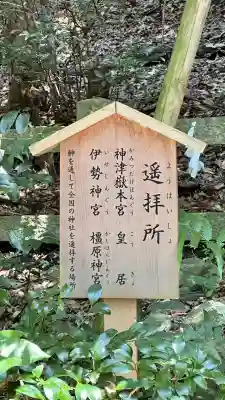 遥拝所
ようはいしょ
神津嶽本宮 皇居
かみつだけほんぐう こうきょ
伊勢神宮 橿原神宮
いせじんぐう かしはらじんぐう
鈴を通して全国の神社を遥拝する場所